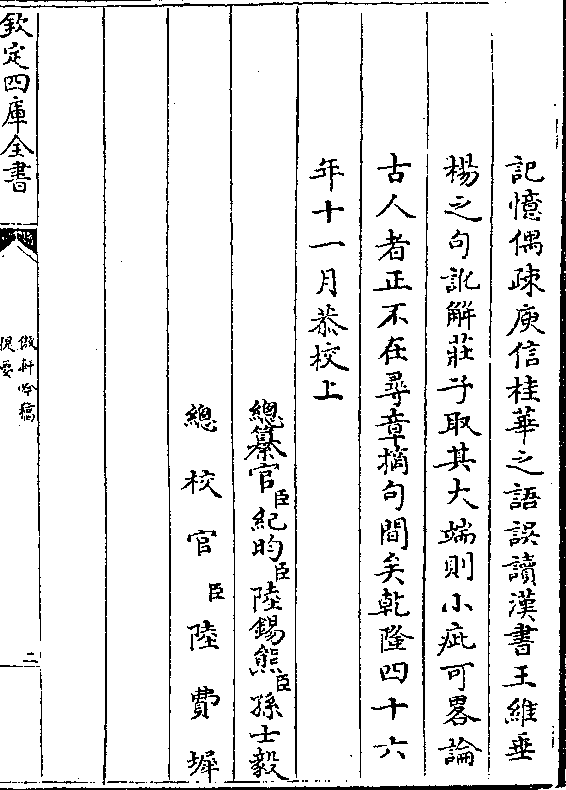 記憶偶疎庾信桂華之語誤讀漢書王維垂
楊之句訛解莊子取其大端則小疵可畧論
古人者正不在尋章摘句間矣乾隆四十六
年十一月恭校上
總纂官臣紀昀臣陸錫熊臣孫士毅
總校官臣陸費墀
欽定四庫全書
傲軒吟稿
提要
二